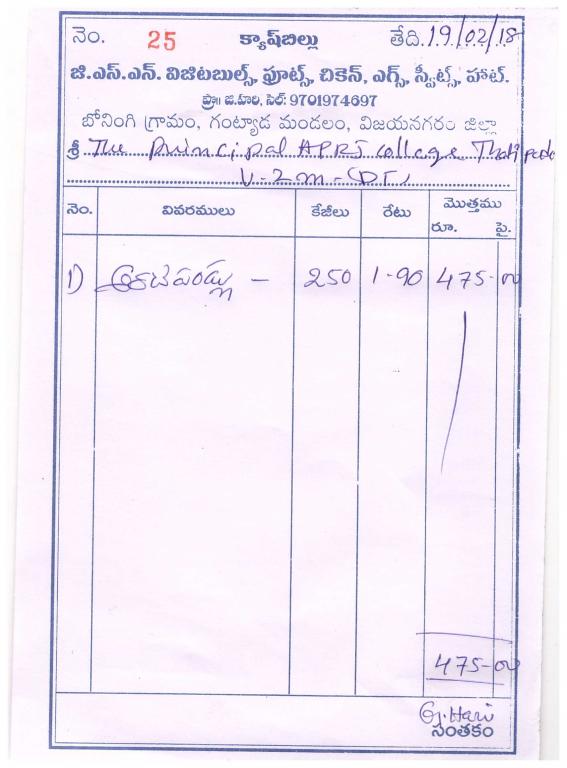 నెం. 25 క్యాష్‌బిల్లు తేది. 19/02/18
జి.ఎస్.ఎన్. విజిటబుల్స్, ఫ్రూట్స్, చికెన్, ఎగ్స్, స్వీట్స్, హాట్.
ప్రొ॥ జి.హరి, సెల్: 9701974697
బోనంగి గ్రామం, గంట్యాడ మండలం, విజయనగరం జిల్లా
శ్రీ The Principal APRJ College
V-Zm-(DT)
నెం. వివరములు కేజీలు రేటు మొత్తము
రూ. పై.
1) అరటిపండ్లు - 250 1-90 475-00
475-00
G. Hari
సంతకం